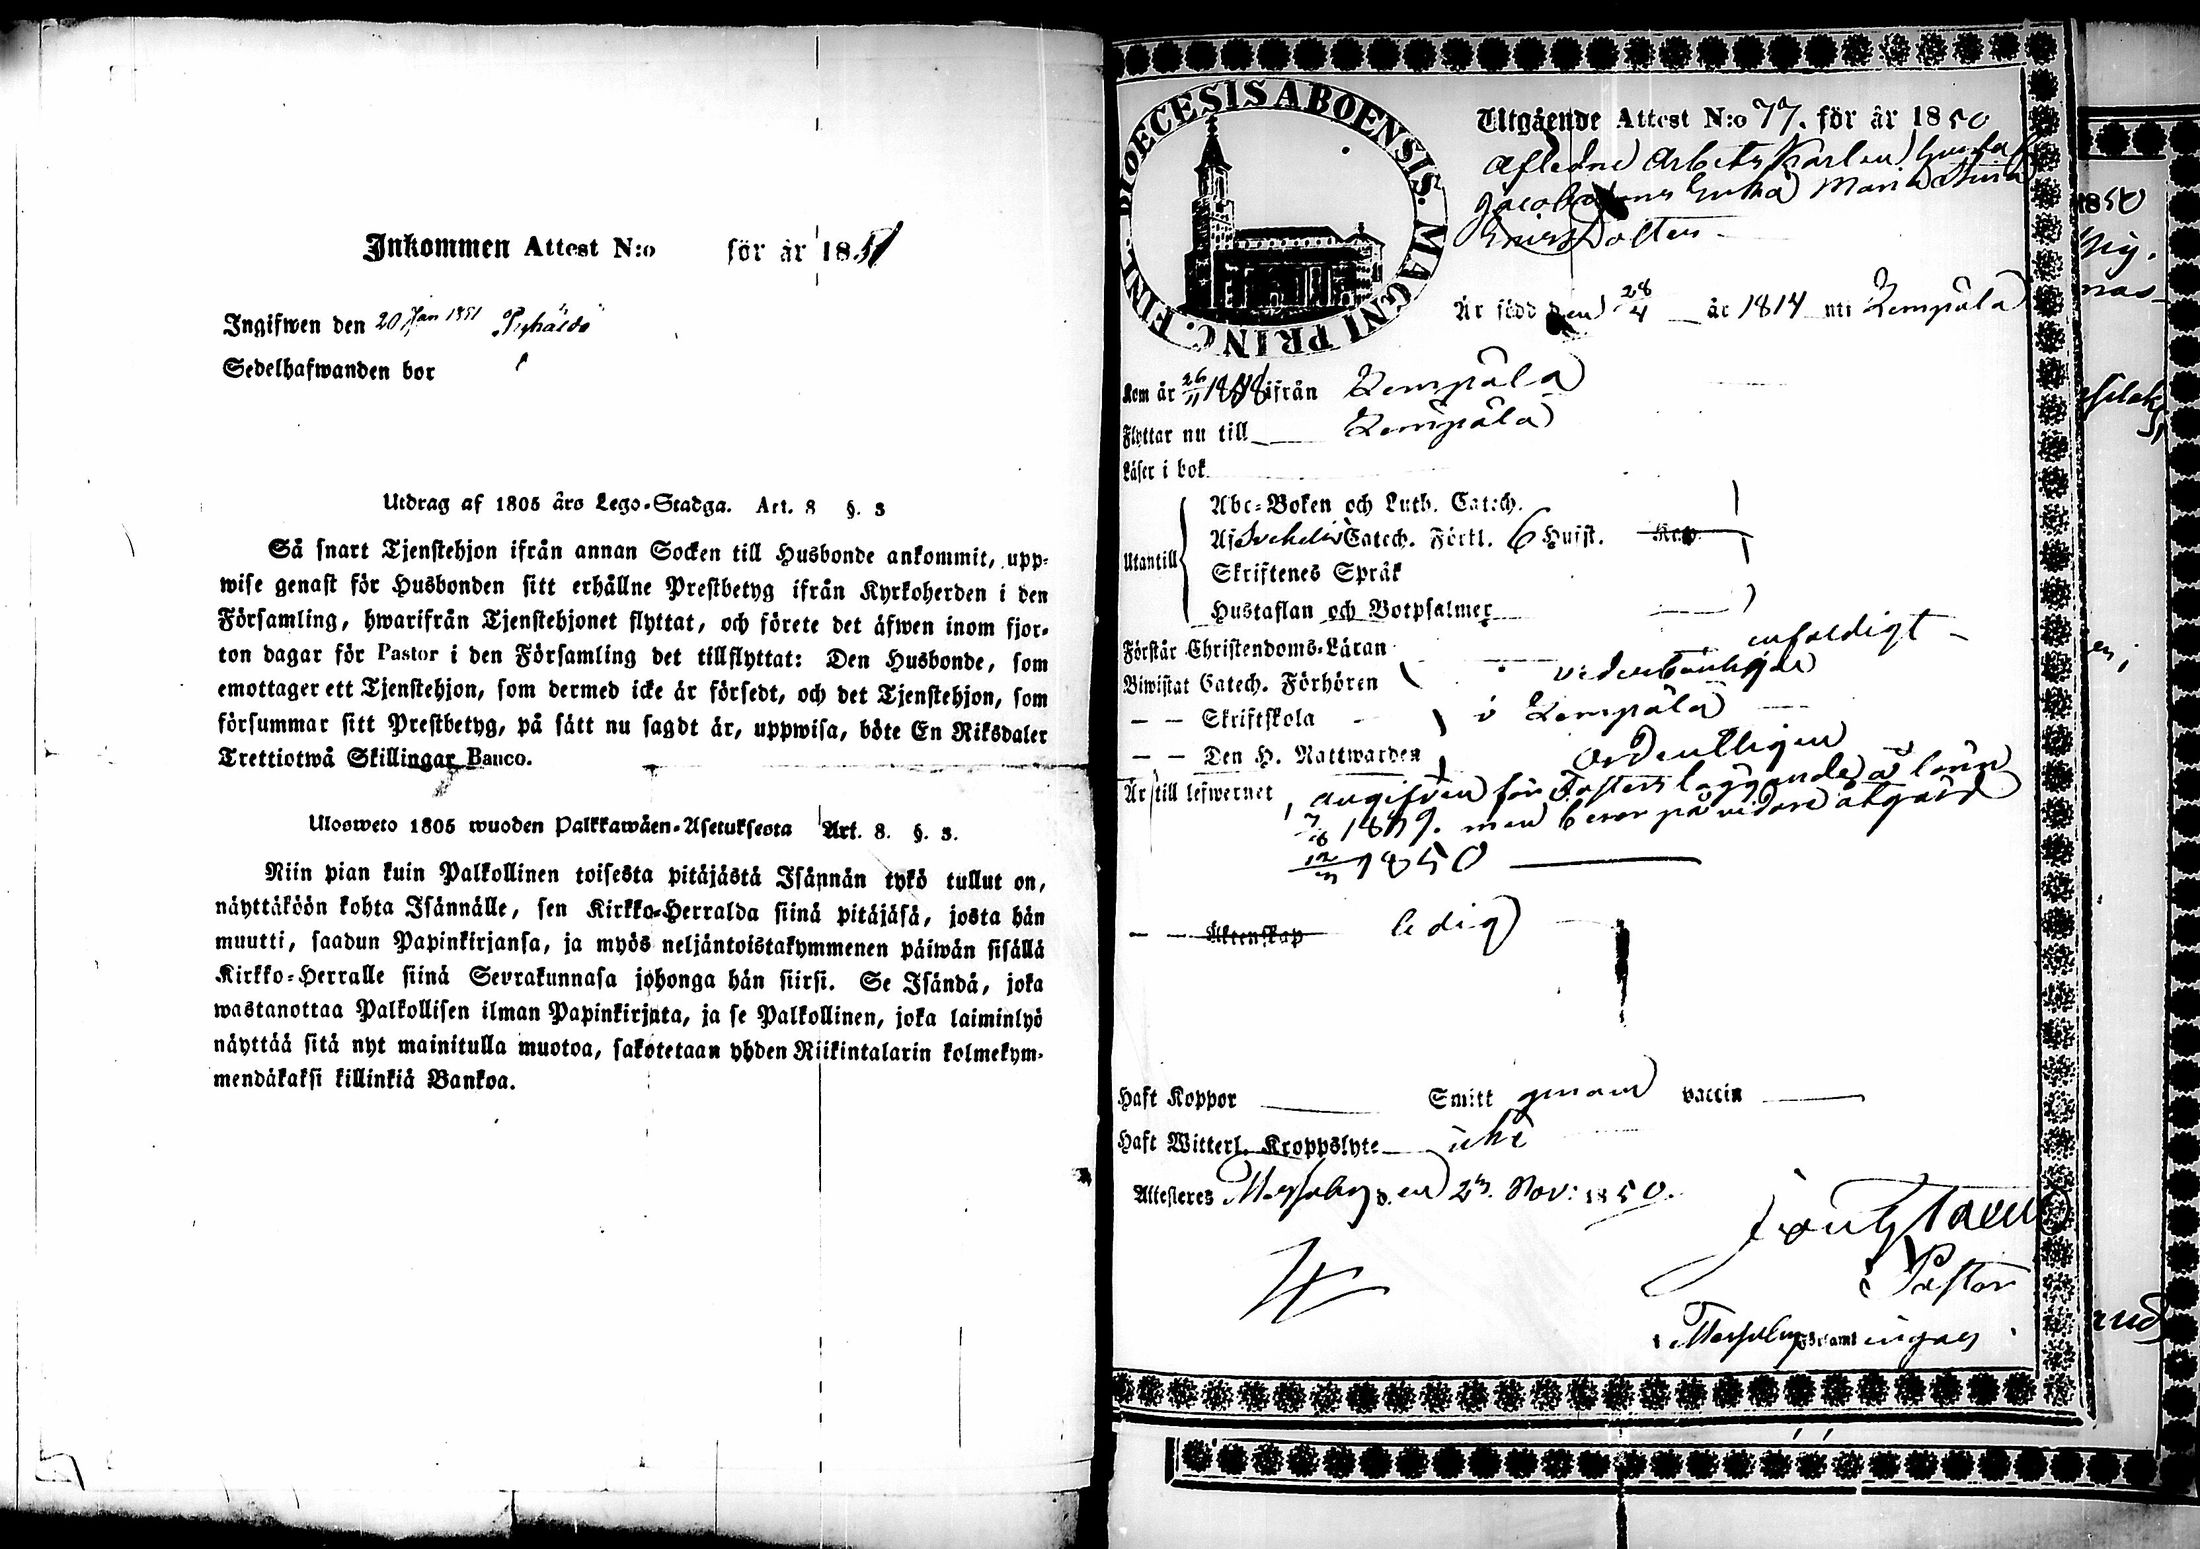 Inkommen Attest N:o för år 1851
Ingifwen den 20 Jan 1851
Sedelhafwanden bor
Utdrag af 1805 års Lego-Stadga. Art. 8 §. 3
Så snart Tjenstehjon ifrån annan Socken till Husbonde ankommit, upp-
wise genast för Husbonden sitt erhållne Prestbetyg ifrån Kyrkoherden i den
Församling, hwarifrån Tjenstehjonet flyttat, och förete det äfwen inom fjor-
ton dagar för Pastor i den Församling det tillflyttat: Den Husbonde, som
emottager ett Tjenstehjon, som dermed icke är försedt, och det Tjenstehjon, som
försummar sitt Prestbetyg, på sätt nu sagdt är, uppwisa, böte En Riksdaler
Trettiotwå Skillingar Banco.
Ulosweto 1805 wuoden Palkkawäen-Asetuksesta Art. 8. §. 3.
Niin pian kuin Palkollinen toisesta pitäjästä Isännän tykö tullut on,
näyttäköön kohta Isännälle, sen Kirkko-Herralda siinä pitäjäsä, josta hän
muutti, saadun Papinkirjansa, ja myös neljäntoistakymmenen päiwän sisällä
Kirkko-Herralle siinä Seurakunnasa johonga hän siirsi. Se Isändä, joka
wastanottaa Palkollisen ilman Papinkirjata, ja se Palkollinen, joka laiminlyö
näyttää sitä nyt mainitulla muotoa, sakotetaan yhden Riikintalarin kolmekym-
mendäkaksi killinkiä Bankoa.
DIOECESIS ABOENSIS. MAGNI PRINC. FINL.
Utgående Attest N:o 77. för år 1850
afledne Arbets Karlen Gustaf
Jacobssons Enka Maria Stina
Ersdotter
Är född den 28/4 år 1814 uti Lempäla
Kom år 26/11 18 ifrån Lempäla
Flyttar nu till Lempäla
Läser i bok
Utantill
Abc-Boken och Luth. Catech.
Af Svebelii Catech. Förkl. 6 Hufst. Kap.
Skriftenes Språk
Hustaflan och Botpsalmer
Förstår Christendoms-Läran enfaldigt
Biwistat Catech. Förhören vederbörligen
— — Skriftskola i Lempäla
— — Den H. Nattwarden ordentligen
Är till lefwernet, angifven för Fosters läggande å lönn
1849. men beror på vidare åtgärd
1850
— — Äktenskap ledig
Haft Koppor Smitt genom vaccin
Haft Witterl. Kroppslyte icke
Attesteras den Nov: 1850.
Pastor
i Församlingen